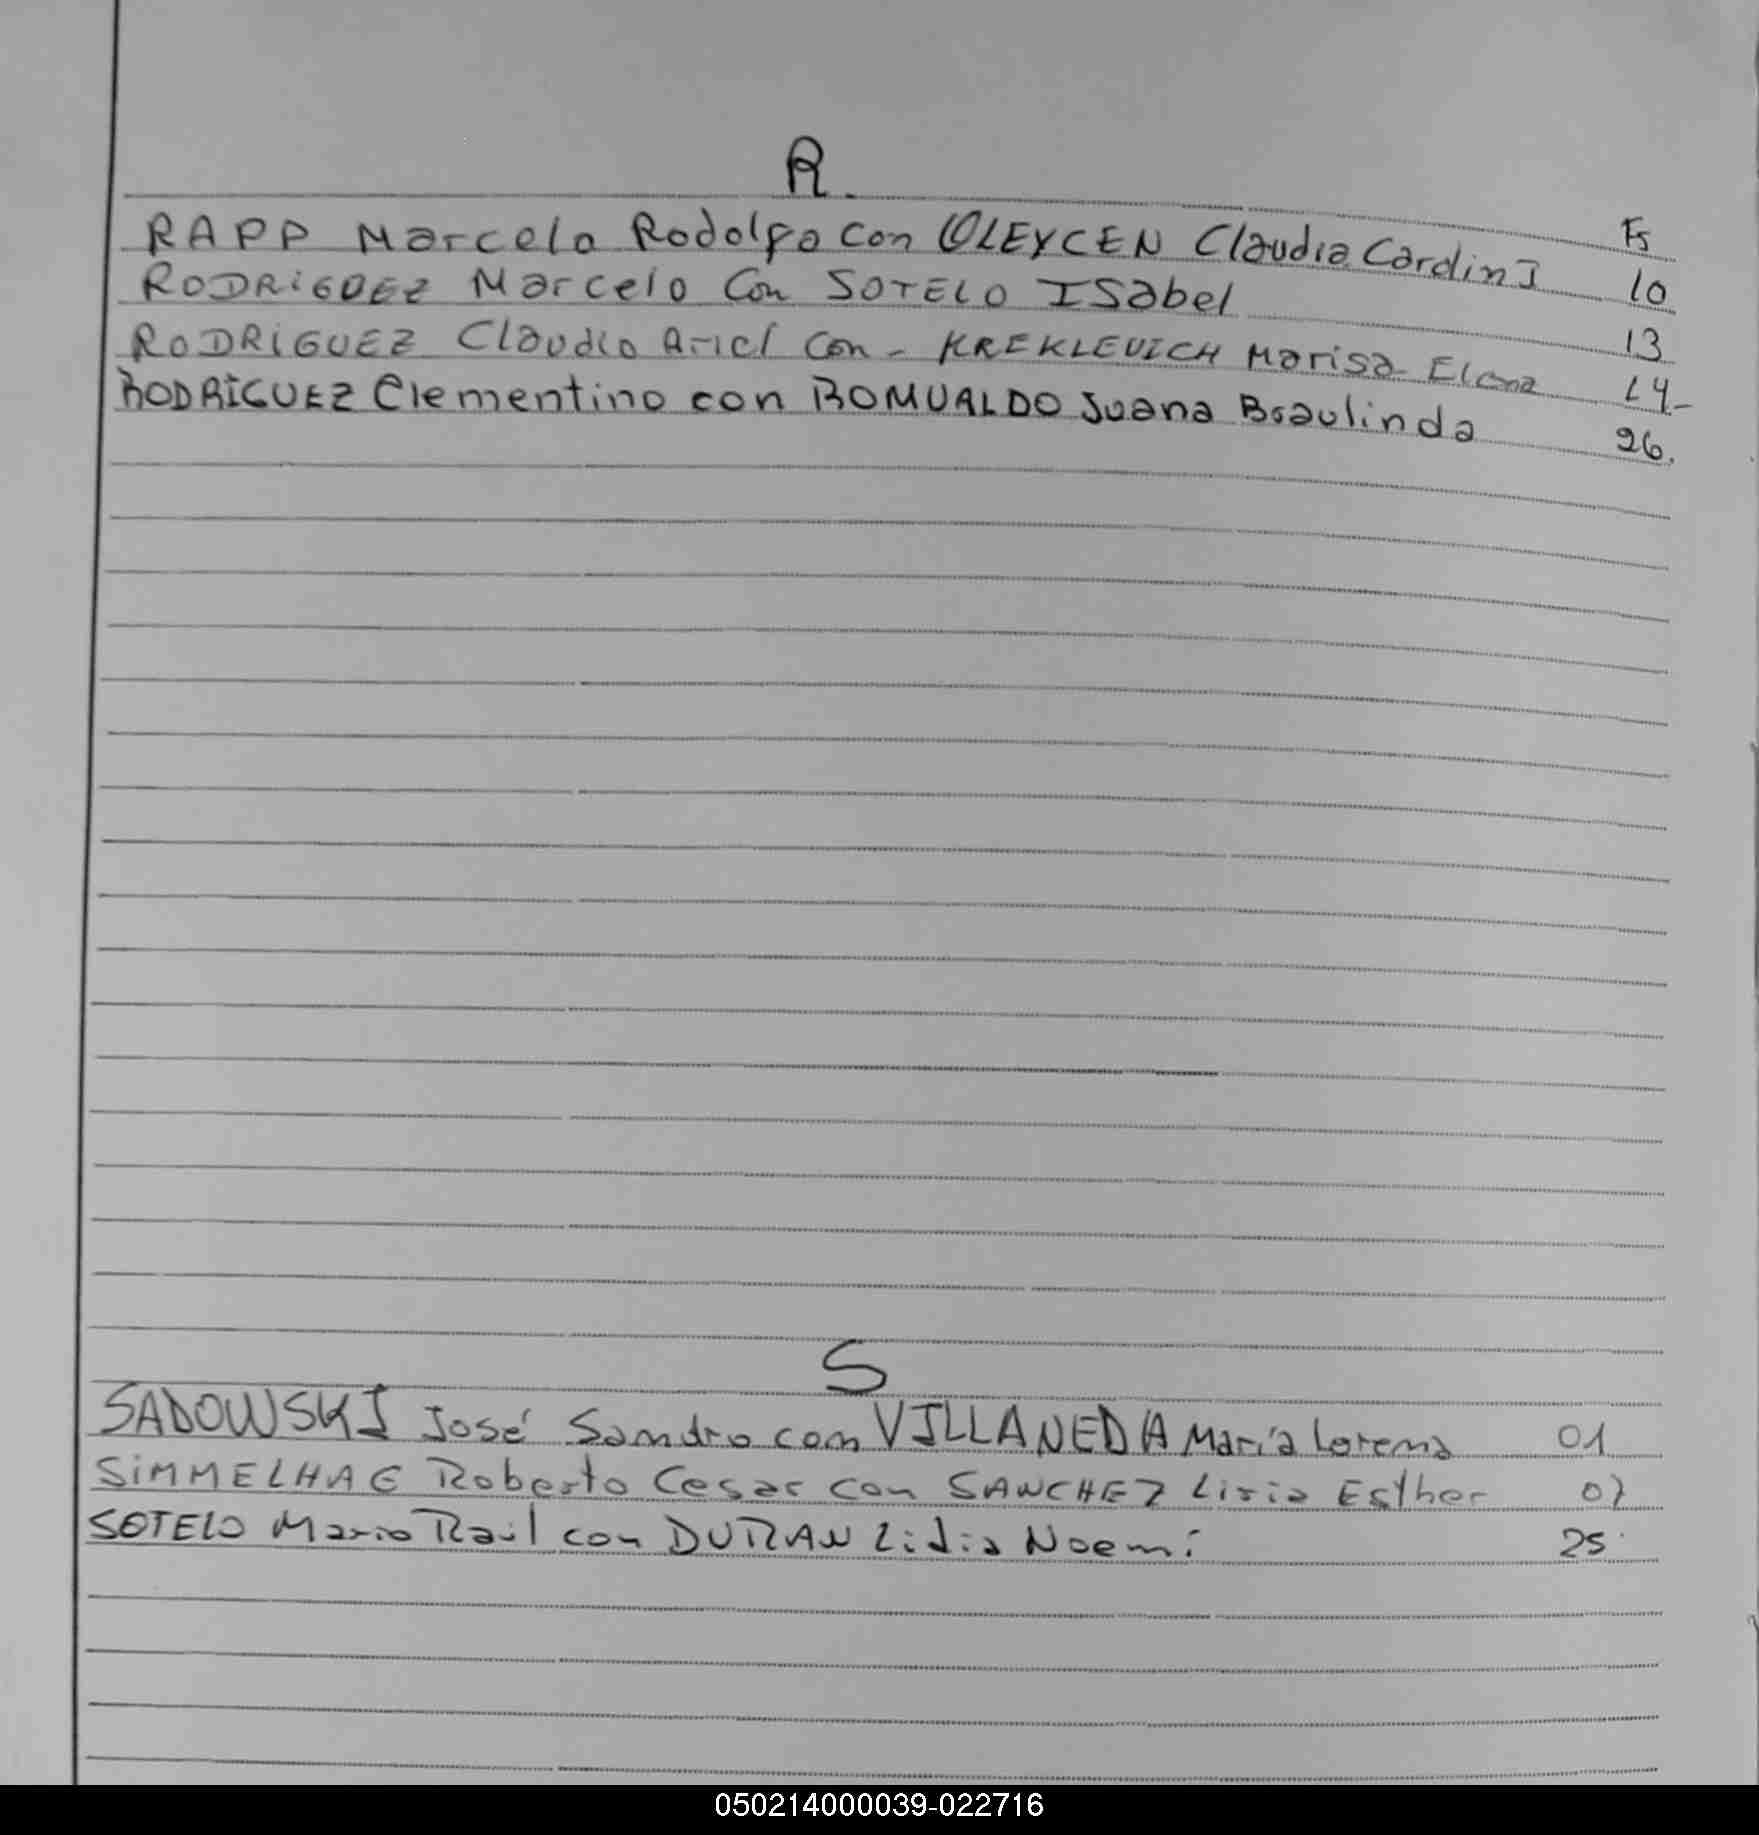 R.
Fs
RAPP Marcelo Rodolfo con OLEYCEN Claudia Cardini 10
RODRiGUEZ Marcelo Con SOTELO ISabel 13
RODRiGUEZ Claudio Ariel con - KREKLEVICH Marisa Elena 14-
RODRÍGUEZ Clementino con ROMUALDO Juana Braulinda 26.
S
SADOWSKI José Sandro con VILLANEDA María Lorena 01
SiMMELHAG Roberto Cesar con SANCHEZ Liria Esther 07
SOTELO Mario Raúl con DURAN Lidia Noemí 25
050214000039-022716